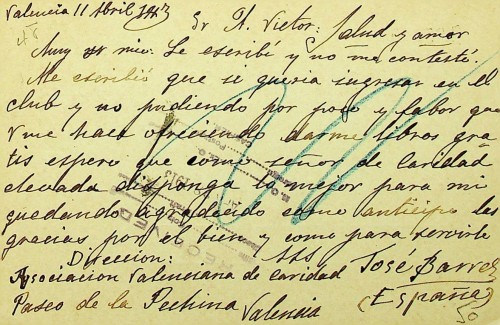 Valencia 11 Abril 1913
Sr A. Victor: Salud y amor
Muy sr mio. Le escribí y no me contestó.
Me escribió que se queria ingresar en el
club y no pudiendo por poco y labor que
V me hace ofreciendo darme libros gra-
tis espero que como señor de caridad
elevada disponga lo mejor para mi
quedando agradecido como anticipo las
gracias por el bien y como para servirle
Direccion:
Asociacion Valenciana de caridad José Barres
Paseo de la Pechina Valencia (España)
RECEIVED
50